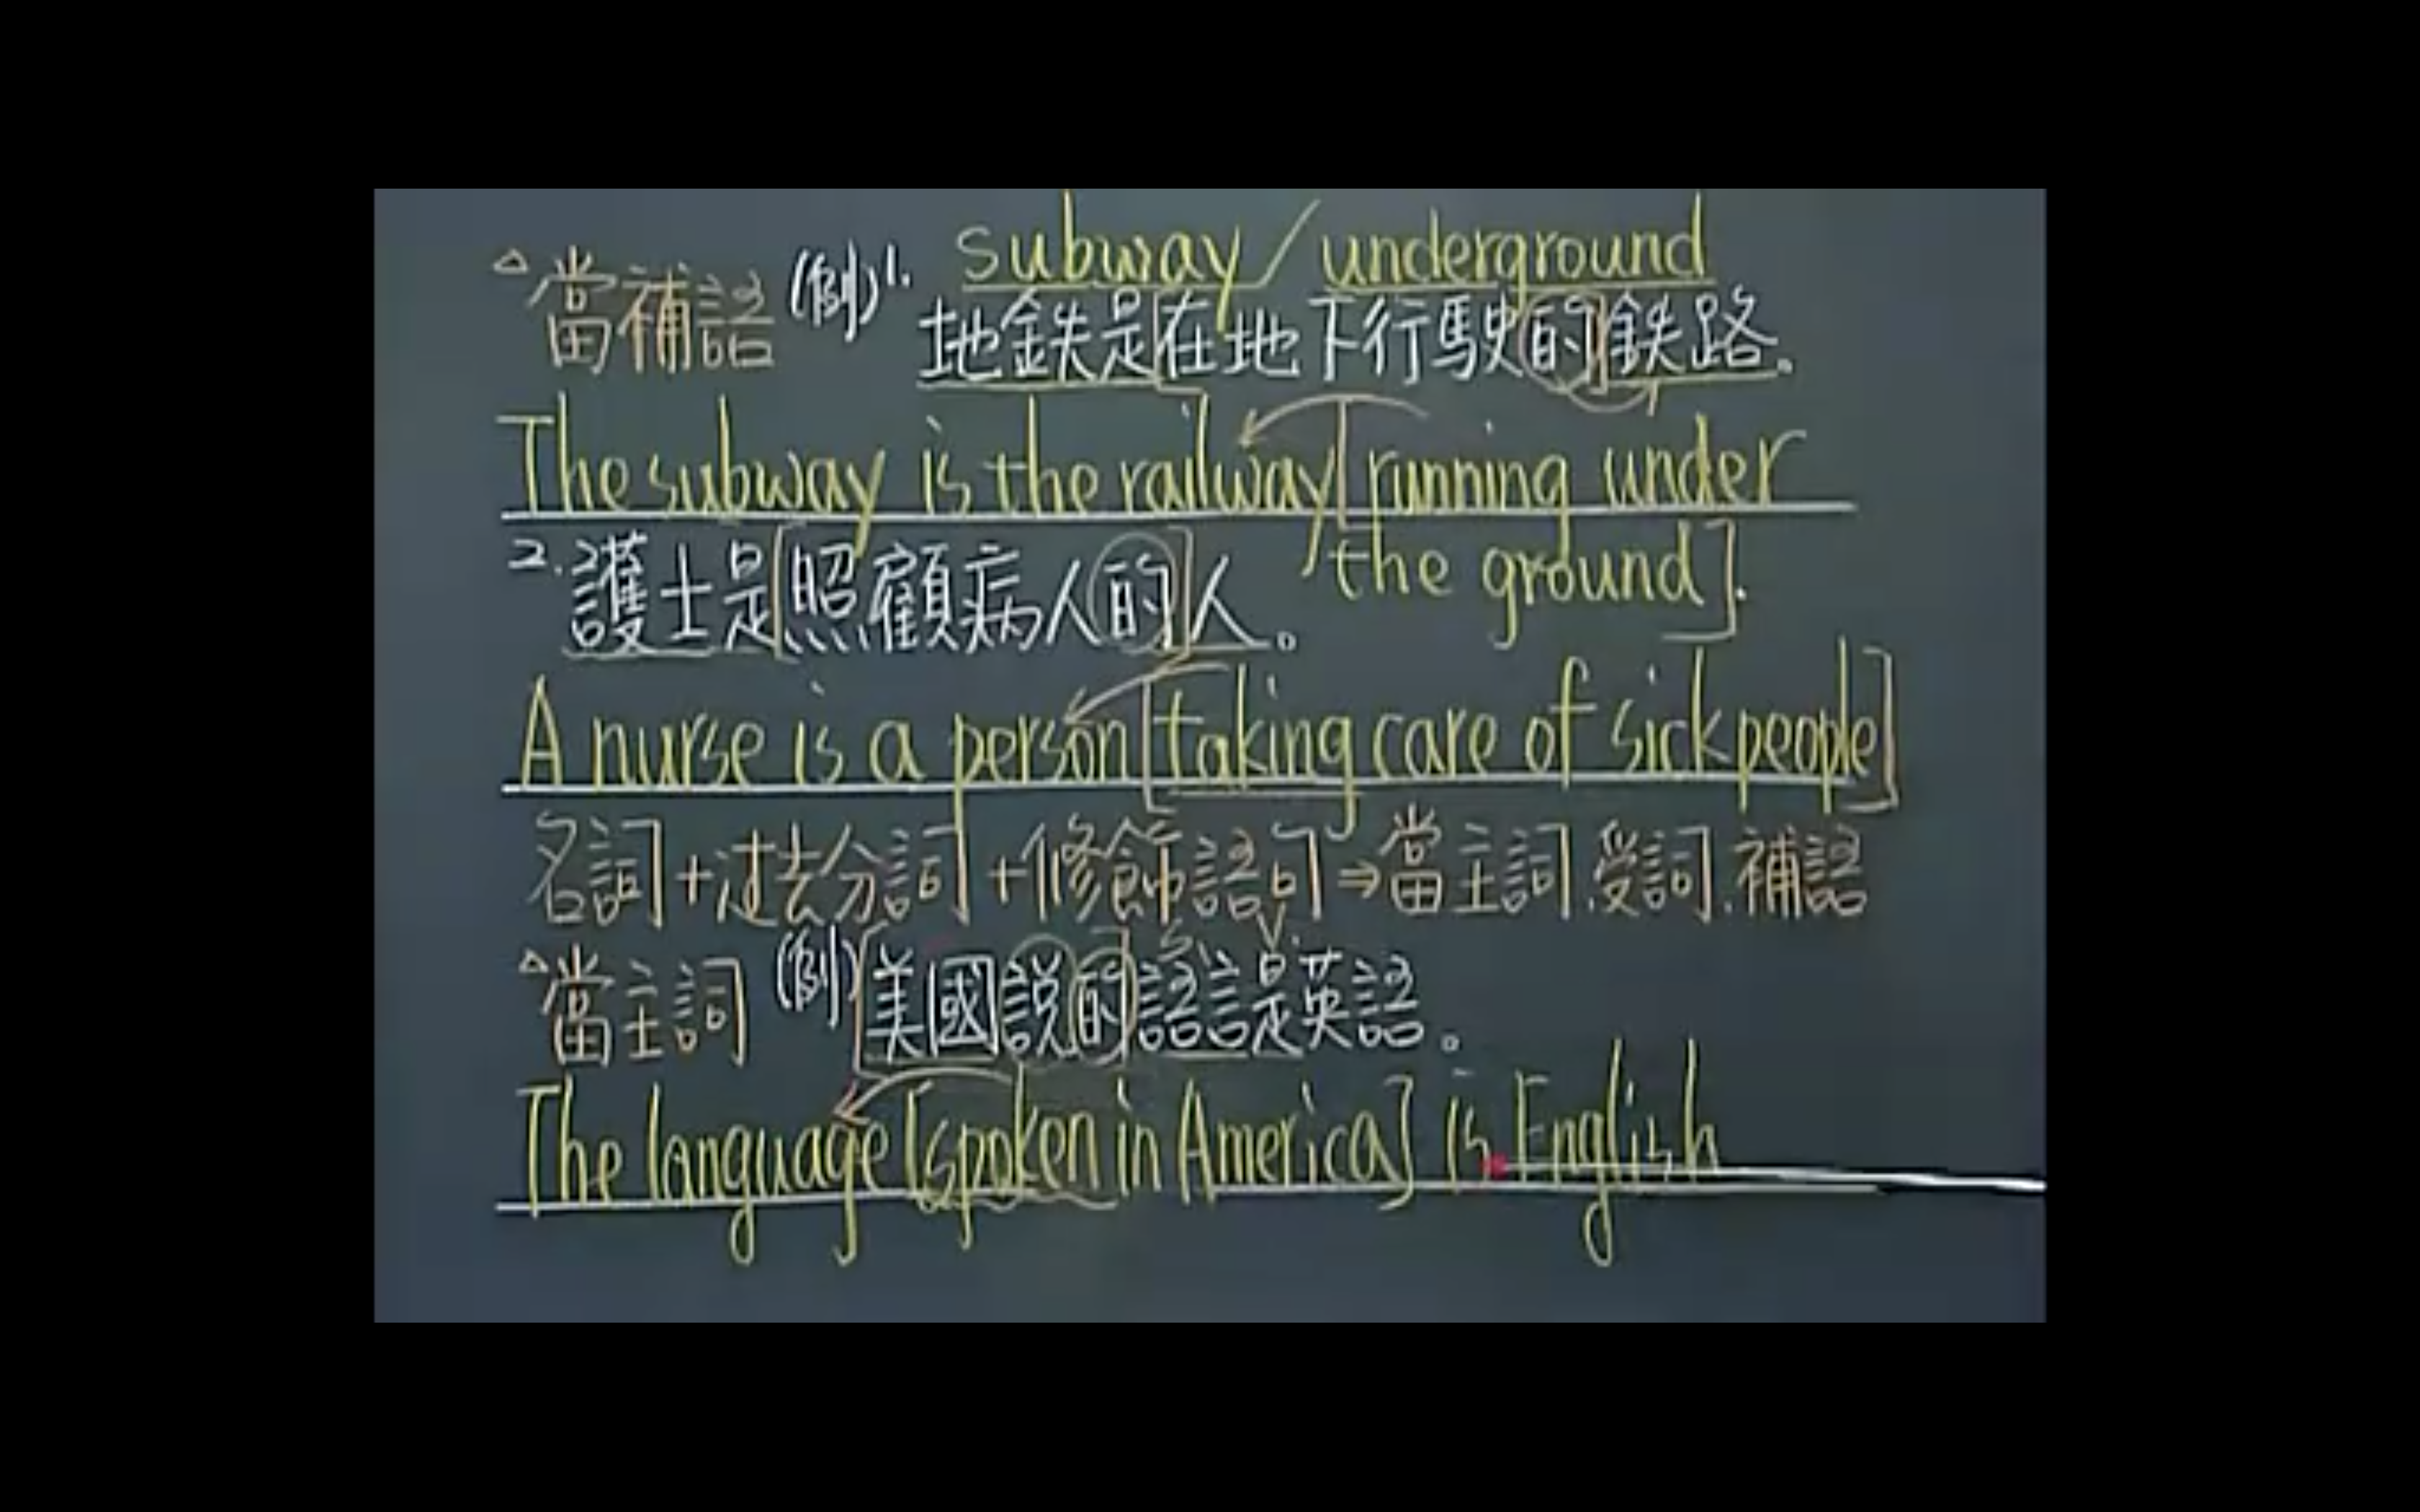 subway / underground
△當補語 (例)1. 地鉄是[在地下行駛的]鉄路。
The subway is the railway [running under
the ground].
2. 護士是[照顧病人的]人。
A nurse is a person [taking care of sick people]
名詞+过去分詞+修飾語句⇒當主詞.受詞.補語
S. V.
△當主詞 (例)[美國説的]語言是英語。
The language [spoken in America] is English